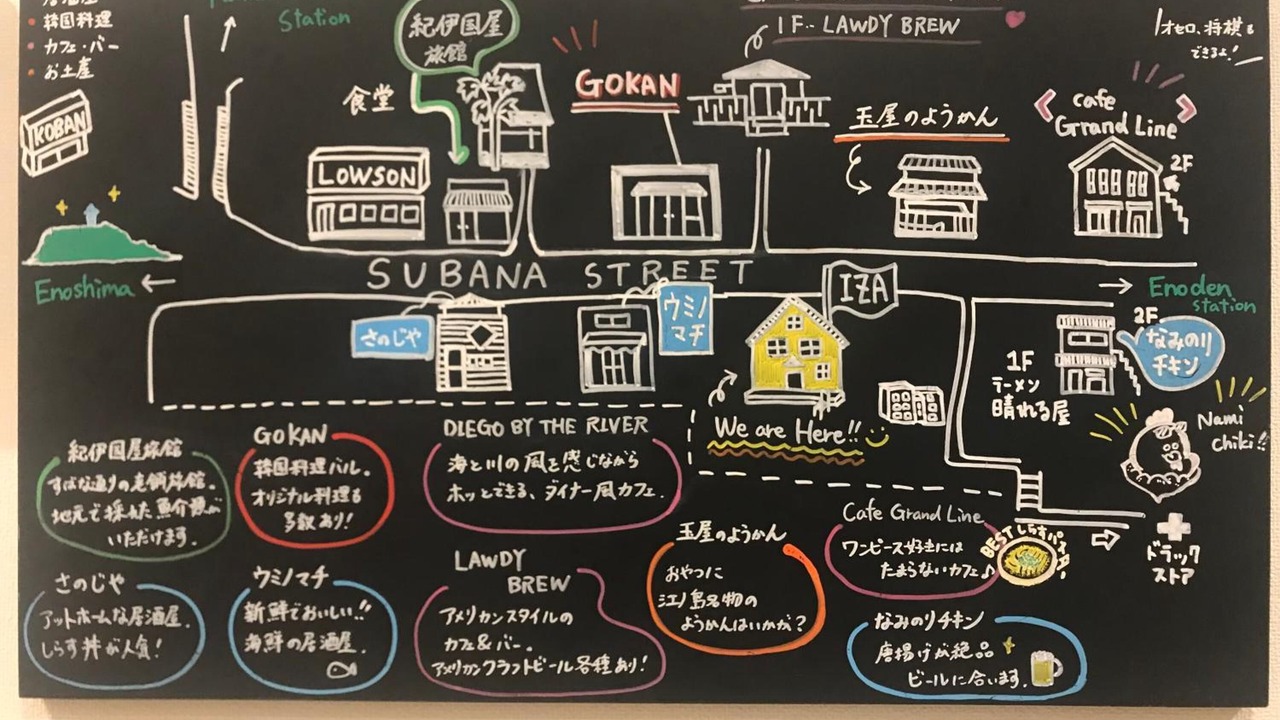 Station
韓国料理
カフェ・バー
お土産
紀伊国屋
旅館
1F-- LAWDY BREW
オセロ、将棋も
できるよ!
KOBAN
食堂
GOKAN
玉屋のようかん
cafe
Grand Line
2F
LOWSON
Enoshima ←
SUBANA STREET
→ Enoden
station
さのじや
ウミノ
マチ
IZA
2F
なみのり
チキン
1F
ラーメン
晴れる屋
We are Here!!
Nami
Chiki!!
紀伊国屋旅館
すばな通りの老舗旅館。
地元で採れた魚介類が
いただけます。
GOKAN
韓国料理バル。
オリジナル料理も
多数あり!
DIEGO BY THE RIVER
海と川の風を感じながら
ホッとできる、ダイナー風カフェ。
さのじや
アットホームな居酒屋。
しらす丼が人気!
ウミノマチ
新鮮でおいしい!!
海鮮の居酒屋。
LAWDY
BREW
アメリカンスタイルの
カフェ&バー。
アメリカンクラフトビール各種あり!
玉屋のようかん
おやつに
江ノ島名物の
ようかんはいかが?
Cafe Grand Line
ワンピース好きには
たまらないカフェ♪
BESTしらすパスタ!
なみのりチキン
唐揚げが絶品
ビールに合います。
ドラック
ストア